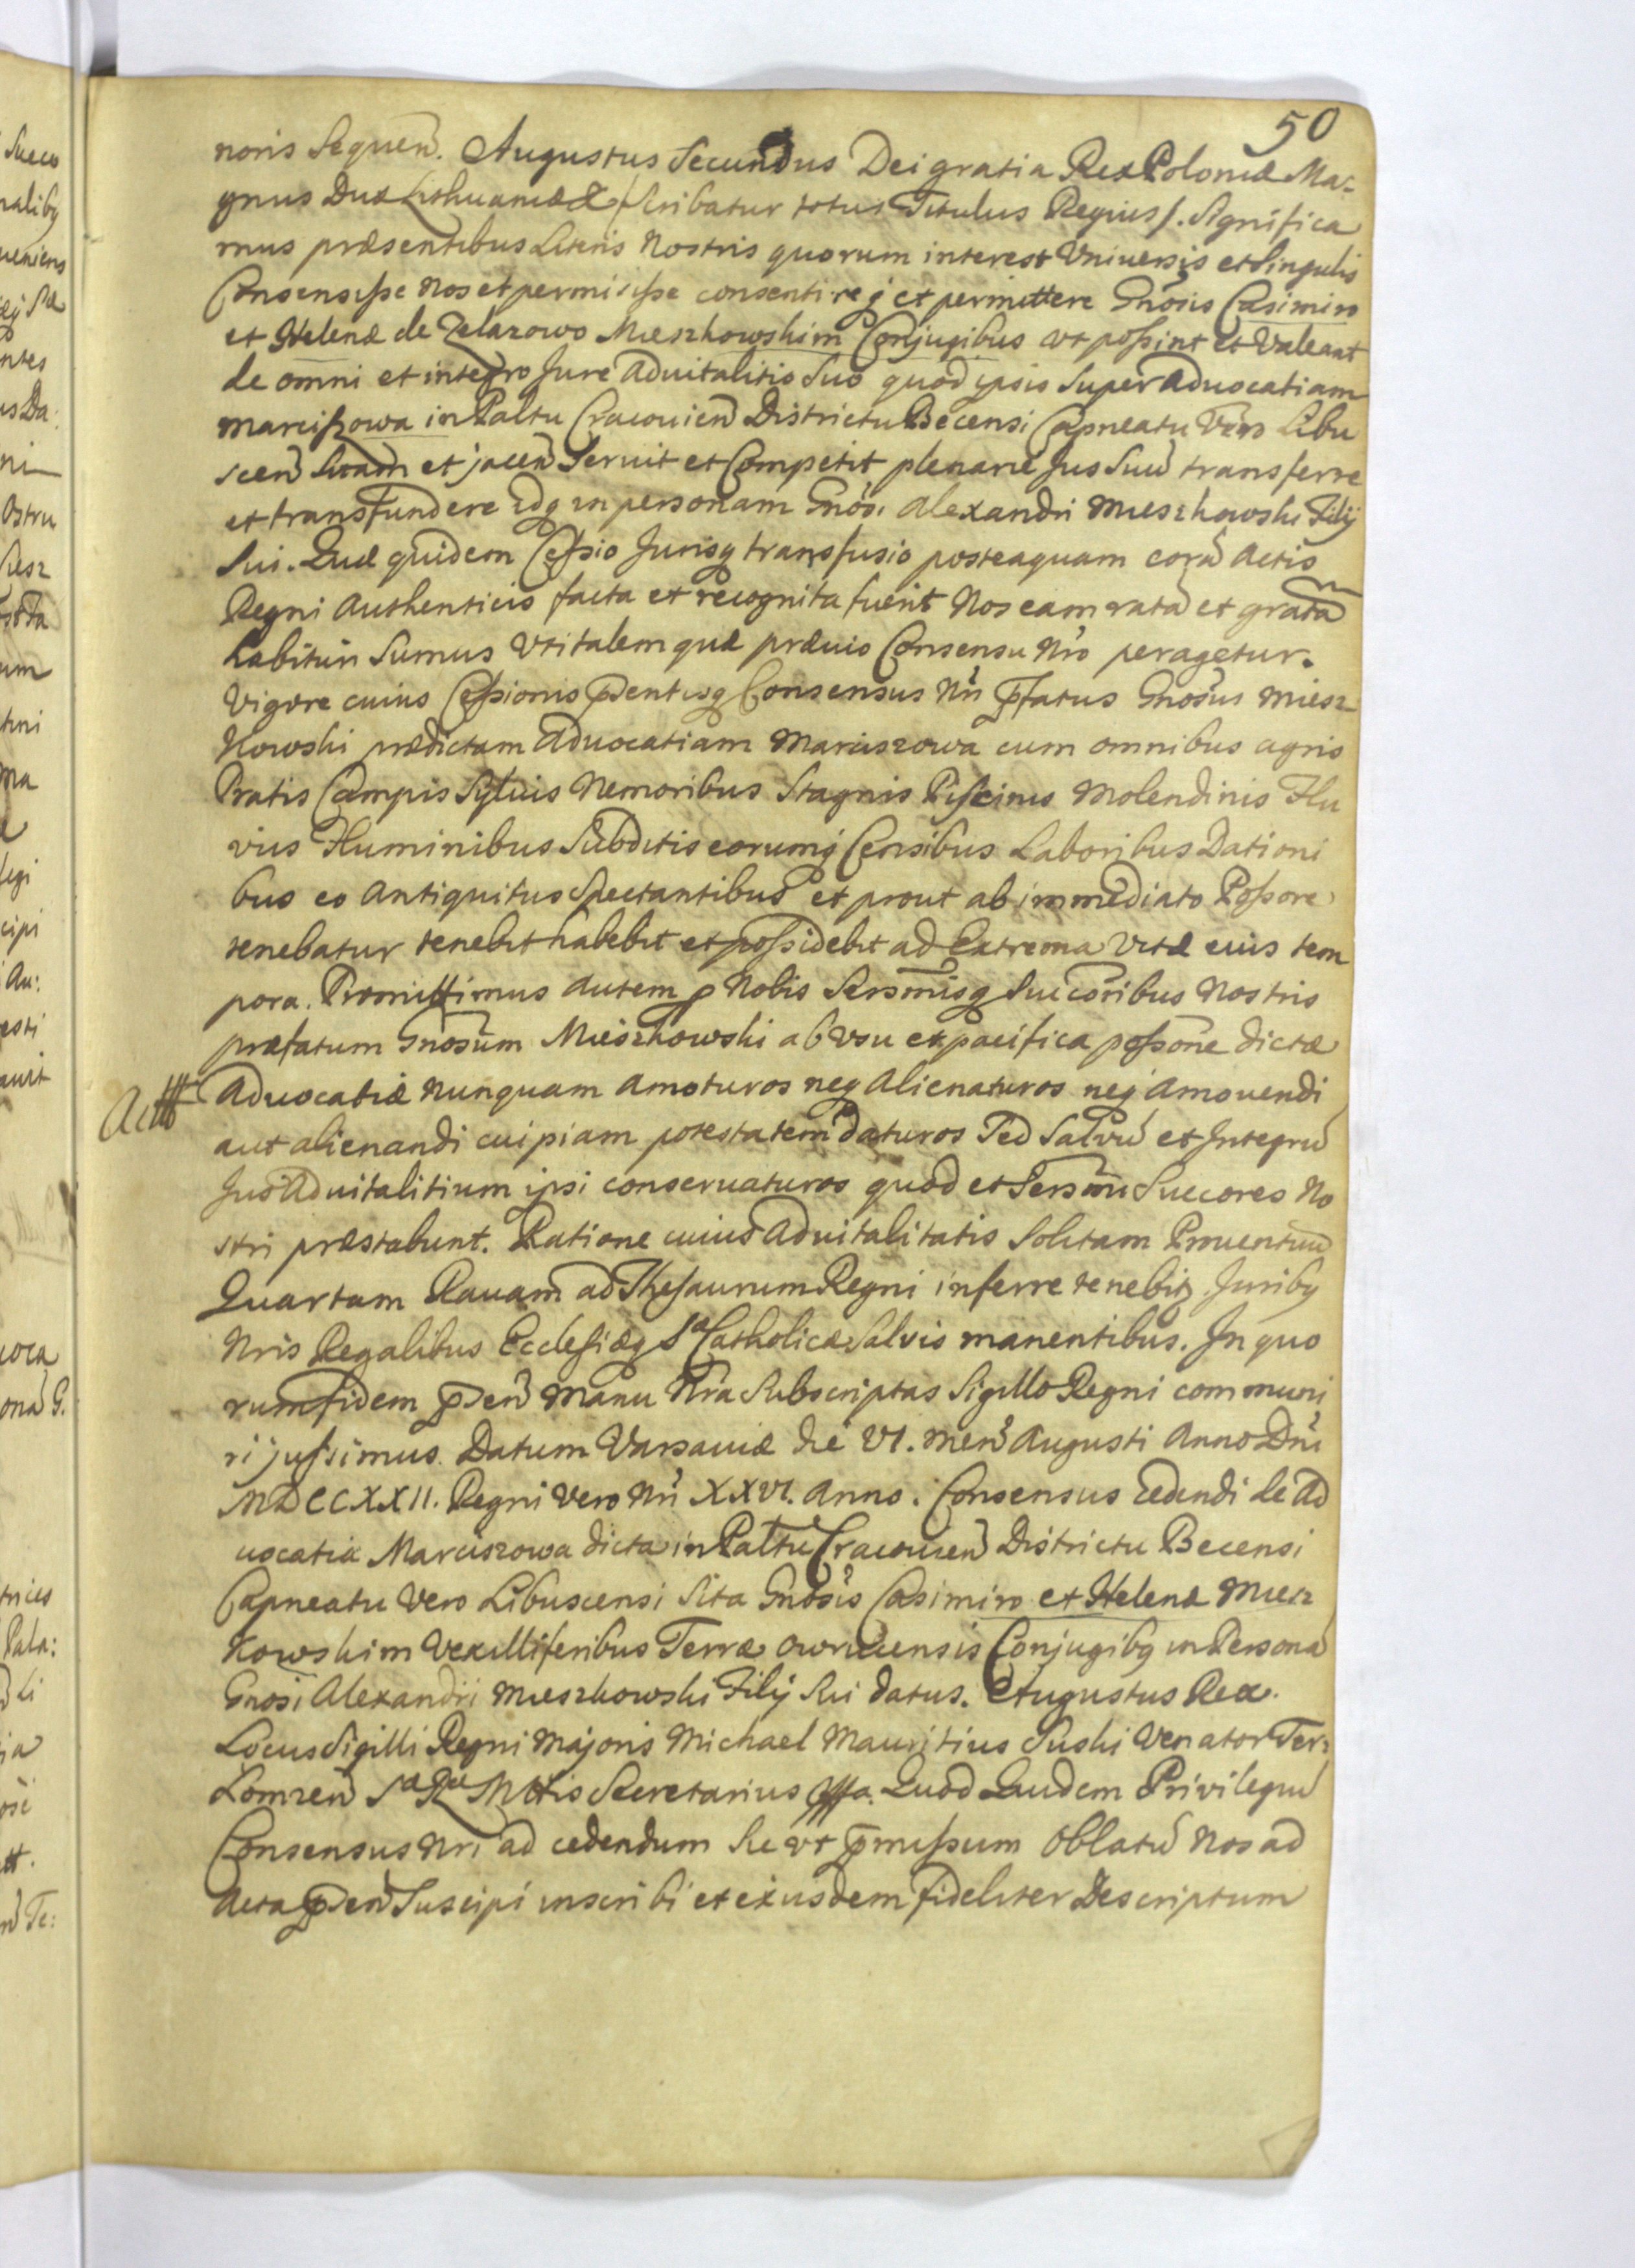 50
noris Sequen. Augustus Secundus Dei gratia Rex Poloniæ Ma-
gnus Dux Lithuaniæ & /Scribatur totus Titulus Regius/. Significa
mus præsentibus Literis Nostris quorum interest Vniuersis et Singulis
Consensisse Nos et permisisse consentireq et permittere Gnosis Casimiro
et Helenæ de Zelazowo Mieszkowskim Conjugibus vt possint et Valeant
de omni et integro Jure Aduitalitio Suo quod ipsis Super Aduocatiam
Marciszowa in Paltu Cracouien Districtu Becensi Capneatu Vero Libu
scen Sitam et jacen Seruit et Competit plenarie Jus Suu transferre
et transfundere idq in personam Gnosi Alexandri Mieszkowski Filij
Sui. Quæ quidem Cessio Jurisq transfusio posteaquam cora Actis
Regni Authenticis facta et recognita fuerit Nos eam rata et grata
habituri Sumus Vti talem quæ præuio Consensu Nro peragetur.
Vigore cuius Cessionis pñentisq Consensus Nri pfatus Gnosus Miesz
Kowski prædictam Aduocatiam Marciszowa cum omnibus agris
Pratis Campis Syluis Nemoribus Stagnis Piscinis Molendinis Flu
viis Fluminibus Subditis eorumq Censibus Laboribus Dationi
bus eo Antiquitus Spectantibus et prout ab immediato Possore
tenebatur tenebit habebit et possidebit ad Extrema Vitæ eius tem
pora. Promittimus Autem p Nobis Sersmisq Succoribus Nostris
præfatum Gnosum Mieszkowski ab Vsu et pacifica possone dictæ
Aduocatiæ Nunquam Amoturos neq Alienaturos neq Amouendi
aut alienandi cuipiam potestatem daturos Sed Salvu et Integru
Jus Aduitalitium ipsi conseruaturos quod et Sersmi Succores No
stri præstabunt. Ratione cuius Aduitalitatis Solitam Prouentuu
Quartam Rauam ad Thesaurum Regni inferre tenebitr. Juribq
Nris Regalibus Ecclesiæq Sæ Catholicæ Salvis manentibus. In quo
rum fidem pñen Manu Nra Subscriptas Sigillo Regni communi
ri jussimus. Datum Varsauiæ die VI. Mens Augusti Anno Dni
MDCCXXII. Regni Vero Nri XXVI. Anno. Consensus cedendi de Ad
uocatia Marciszowa dicta in Paltu Cracouien Districtu Becensi
Capneatu Vero Libuscensi Sita Gnosis Casimiro et Helenæ Miesz
Kowskim Vexilliferibus Terræ Owrucensis Conjugibq in Persona
Gnosi Alexandri Mieszkowski Filij Sui datus. Augustus Rex.
Locus Sigilli Regni Majoris Michael Mauritius Suski Venator Terr
Lomzen Sæ Ræ Mttis Secretarius Quod Quidem Privilegiu
Consensus Nri ad cedendum Se vt pmissum Oblatu Nos ad
Acta pñen Suscipi inscribi et eiusdem fideliter Descriptum